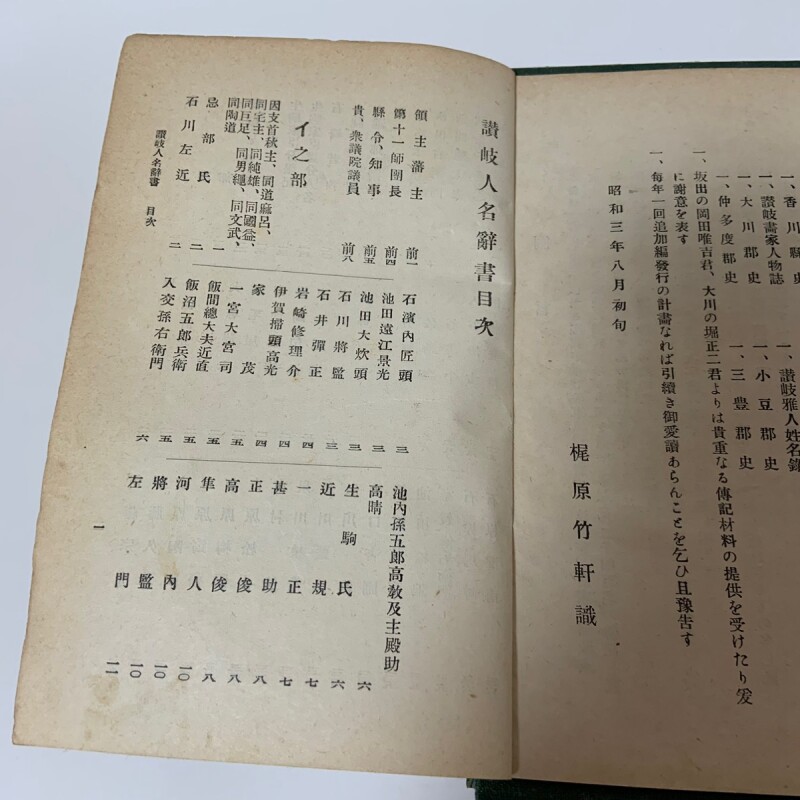 一、香川縣史
一、讃岐雅人姓名錄
一、讃岐畫家人物誌
一、小豆郡史
一、大川郡史
一、三豊郡史
一、仲多度郡史
一、坂出の岡田唯吉君、大川の堀正二君よりは貴重なる傳記材料の提供を受けたり爰
に謝意を表す
一、每年一回追加編發行の計畫なれば引續き御愛讀あらんことを乞ひ且豫告す
昭和三年八月初旬
梶原竹軒識
讃岐人名辭書目次
領主藩主 前一
第十一師團長 前四
縣令、知事 前五
貴、衆議院議員 前八
イ之部
因支首秋主、同道麻呂、
同宅主、同純雄、同國益、
同巨足、同男繩、同文武、
同陶道 一
忌部氏 二
石川左近 二
石濱內匠頭 三
池田遠江景光 三
池田大炊頭 三
石川將監 三
石井彈正 四
岩崎修理介 四
伊賀掃頭高光 四
家茂 五
一宮大宮司 五
飯間總大夫近直 五
飯沼五郎兵衛 五
入交孫右衛門 六
池內孫五郎高敎及主殿助
高晴 六
生駒氏 六
近規 七
一正 七
甚助 八
正俊 八
高俊 八
隼人 一〇
河內 一〇
將監 一〇
左門 一一
讃岐人名辭書 目次
一